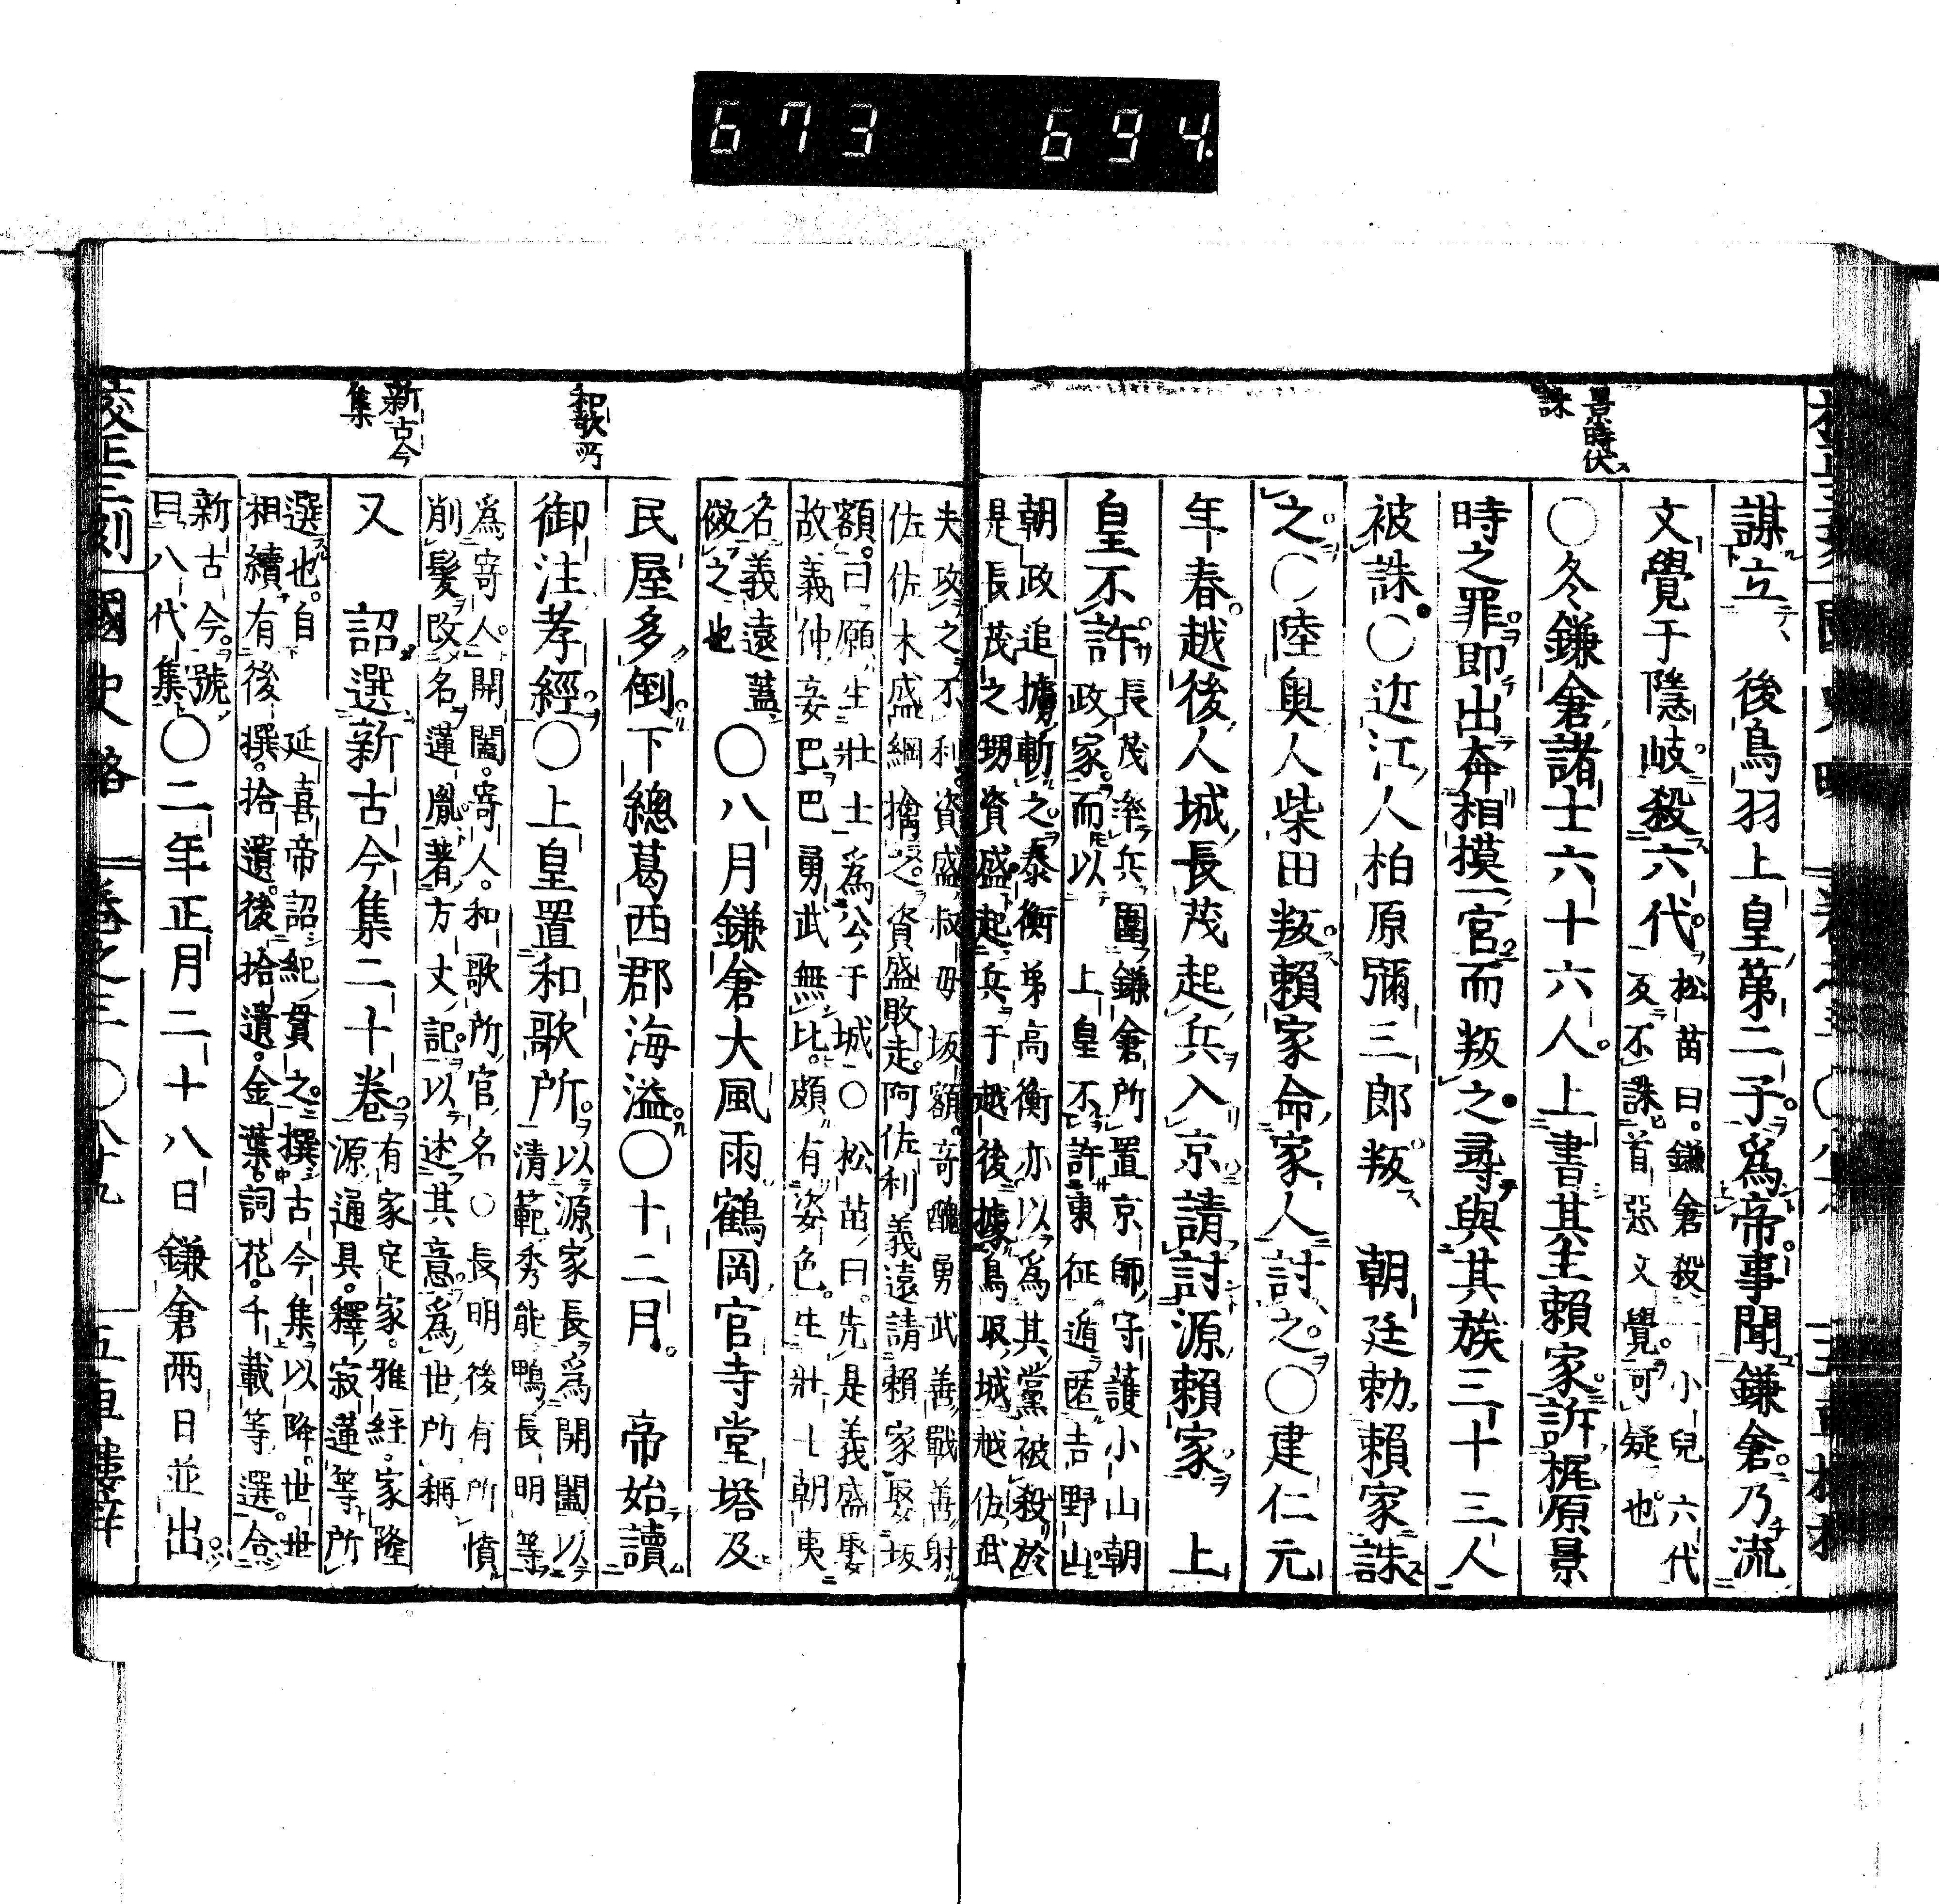 673 694.
景時伏
誅
謀立後鳥羽上皇第二子爲帝事聞鎌倉乃流
文覺于隱岐殺六代松苗曰鎌倉殺一小兒六代
一反不誅首惡文覺可疑也
〇冬鎌倉諸士六十六人上書其主賴家訴梶原景
時之罪即出奔相摸一宮而叛之尋與其族三十三人
被誅〇近江人柏原彌三郎叛朝廷勅賴家誅
之〇陸奥人柴田叛賴家命家人討之〇建仁元
年春越後人城長茂起兵入京請討源賴家上
皇不許長茂率兵圍鎌倉所置京師守護小山朝
政家而以上皇不許東征遁匿吉野山
朝政追擄斬之泰衡弟高衡亦以爲其黨被殺於
是長茂之甥資盛起兵于越後據鳥取城越佐武
夫攻之不利資盛叔母坂額奇醜勇武善戰善射
佐佐木盛綱擒之資盛敗走阿佐利義遠請賴家娶坂
額曰願生壯士爲公于城〇松苗曰先是義盛娶
故義仲妾巴巴勇武無比頗有姿色生壯士朝夷
名義遠蓋
傚之也
〇八月鎌倉大風雨鶴岡宮寺堂塔及
民屋多倒下總葛西郡海溢〇十二月帝始讀
御注孝經〇上皇置和歌所以源家長爲開闔以
清範秀能鴨長明等
爲寄人開闔寄人和歌所官名〇長明後有所憤
削髮改名蓮胤著方丈記以述其意爲世所稱
又詔選新古今集二十卷有家定家雅経家隆
源通具釋寂蓮等所
選也自延喜帝詔紀貫之撰古今集以降世世
相續有後撰拾遺後拾遺金葉詞花千載等選合
新古今號
曰八代集
〇二年正月二十八日鎌倉兩日並出
和歌所
新古今
集
校正三刻國史略 卷之三 〇八十九 五車樓梓